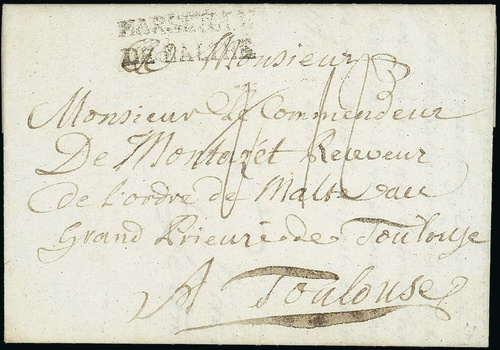 MARSEILLE
DE MALTHE
Monsieur
Monsieur Le Commendeur
De Montazet Receveur
de l'ordre de Malte au
Grand Prieuré de Toulouse
A Toulouse